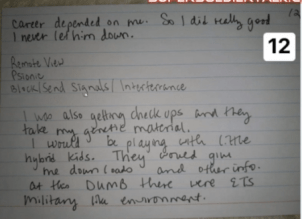 SUPERSOLDIERTALK.C
12
career depended on me. So I did really good
I never let him down.
12
Remote View
Psionic
Block/Send Signals/Interference
I was also getting check ups and they
take my genetic material.
I would be playing with little
hybrid kids. They would give
me downloads and other info.
at the DUMB there were ETs
Military like environment.